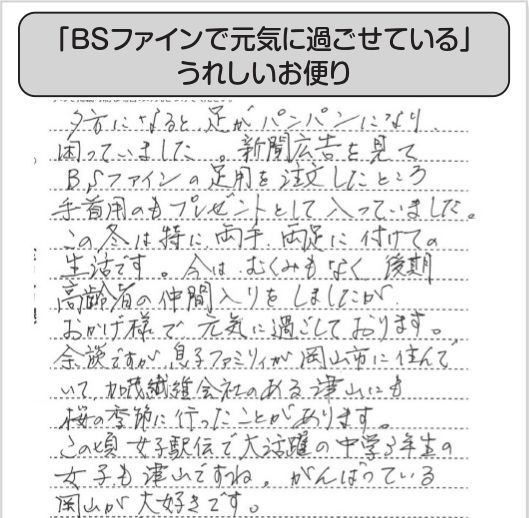 「BSファインで元気に過ごせている」
うれしいお便り
夕方になると、足がパンパンになり、
困っていました。新聞広告を見て
BSファインの足用を注文したところ
手首用のもプレゼントとして入っていました。
この冬は特に、両手、両足に付けての
生活です。今は、むくみもなく、後期
高齢者の仲間入りをしましたが、
おかげ様で元気に過ごしております。
余談ですが、息子ファミリィが岡山市に住んで
いて、加茂繊維会社のある津山にも
桜の季節に行ったことがあります。
この頃女子駅伝で大活躍の中学3年生の
女子も津山ですね。がんばっている
岡山が大好きです。